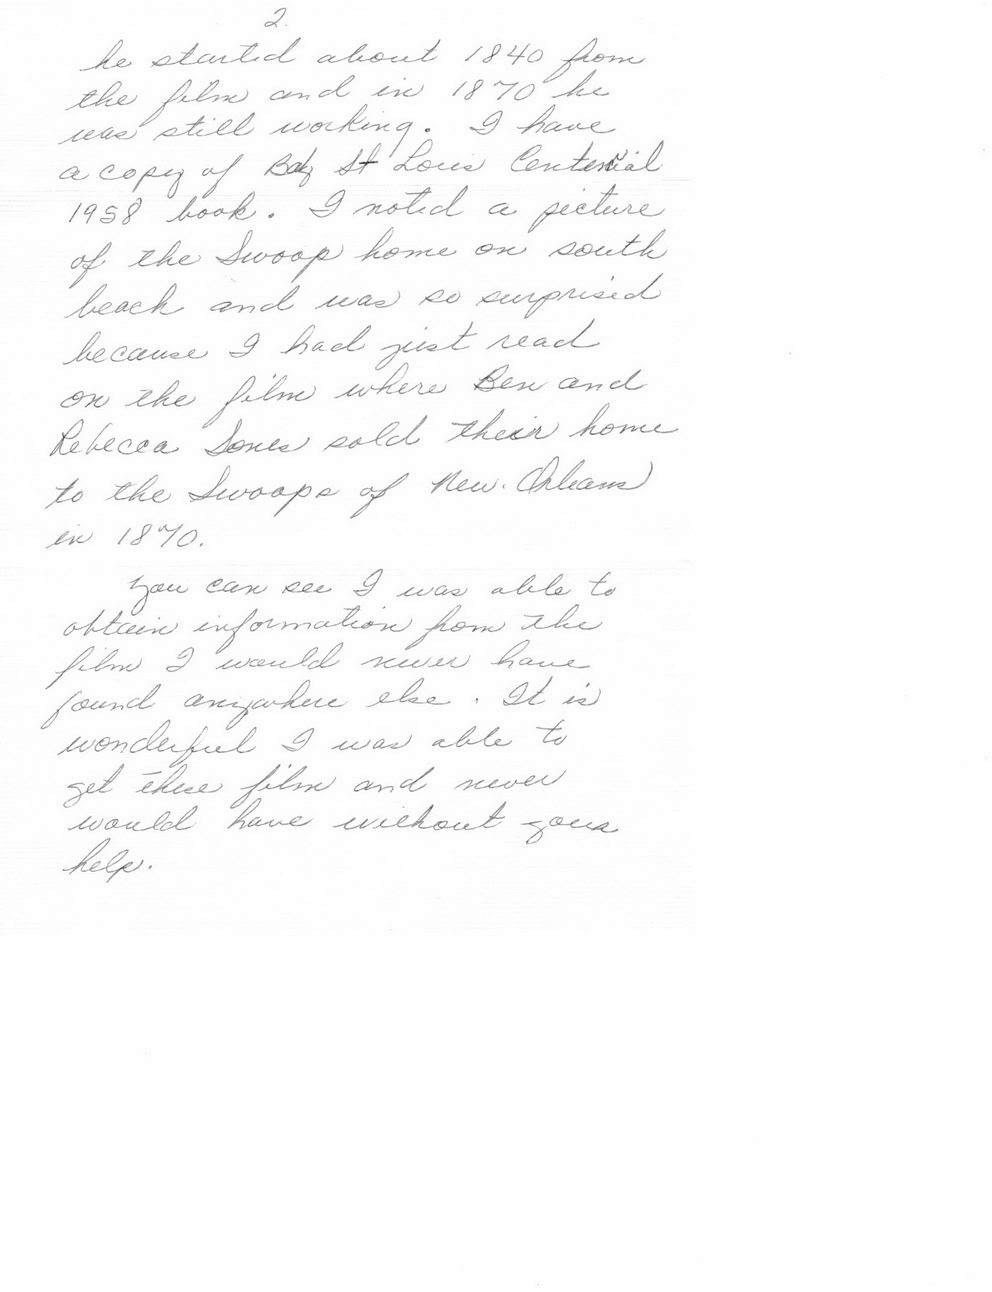 2.
he started about 1840 from
the film and in 1870 he
was still working. I have
a copy of Bay St Louis Centenial
1958 book. I noted a picture
of the Swoop home on south
beach and was so surprised
because I had just read
on the film where Ben and
Rebecca Jones sold their home
to the Swoops of New Orleans
in 1870.
You can see I was able to
obtain information from the
film I would never have
found anywhere else. It is
wonderful I was able to
get these film and never
would have without your
help.